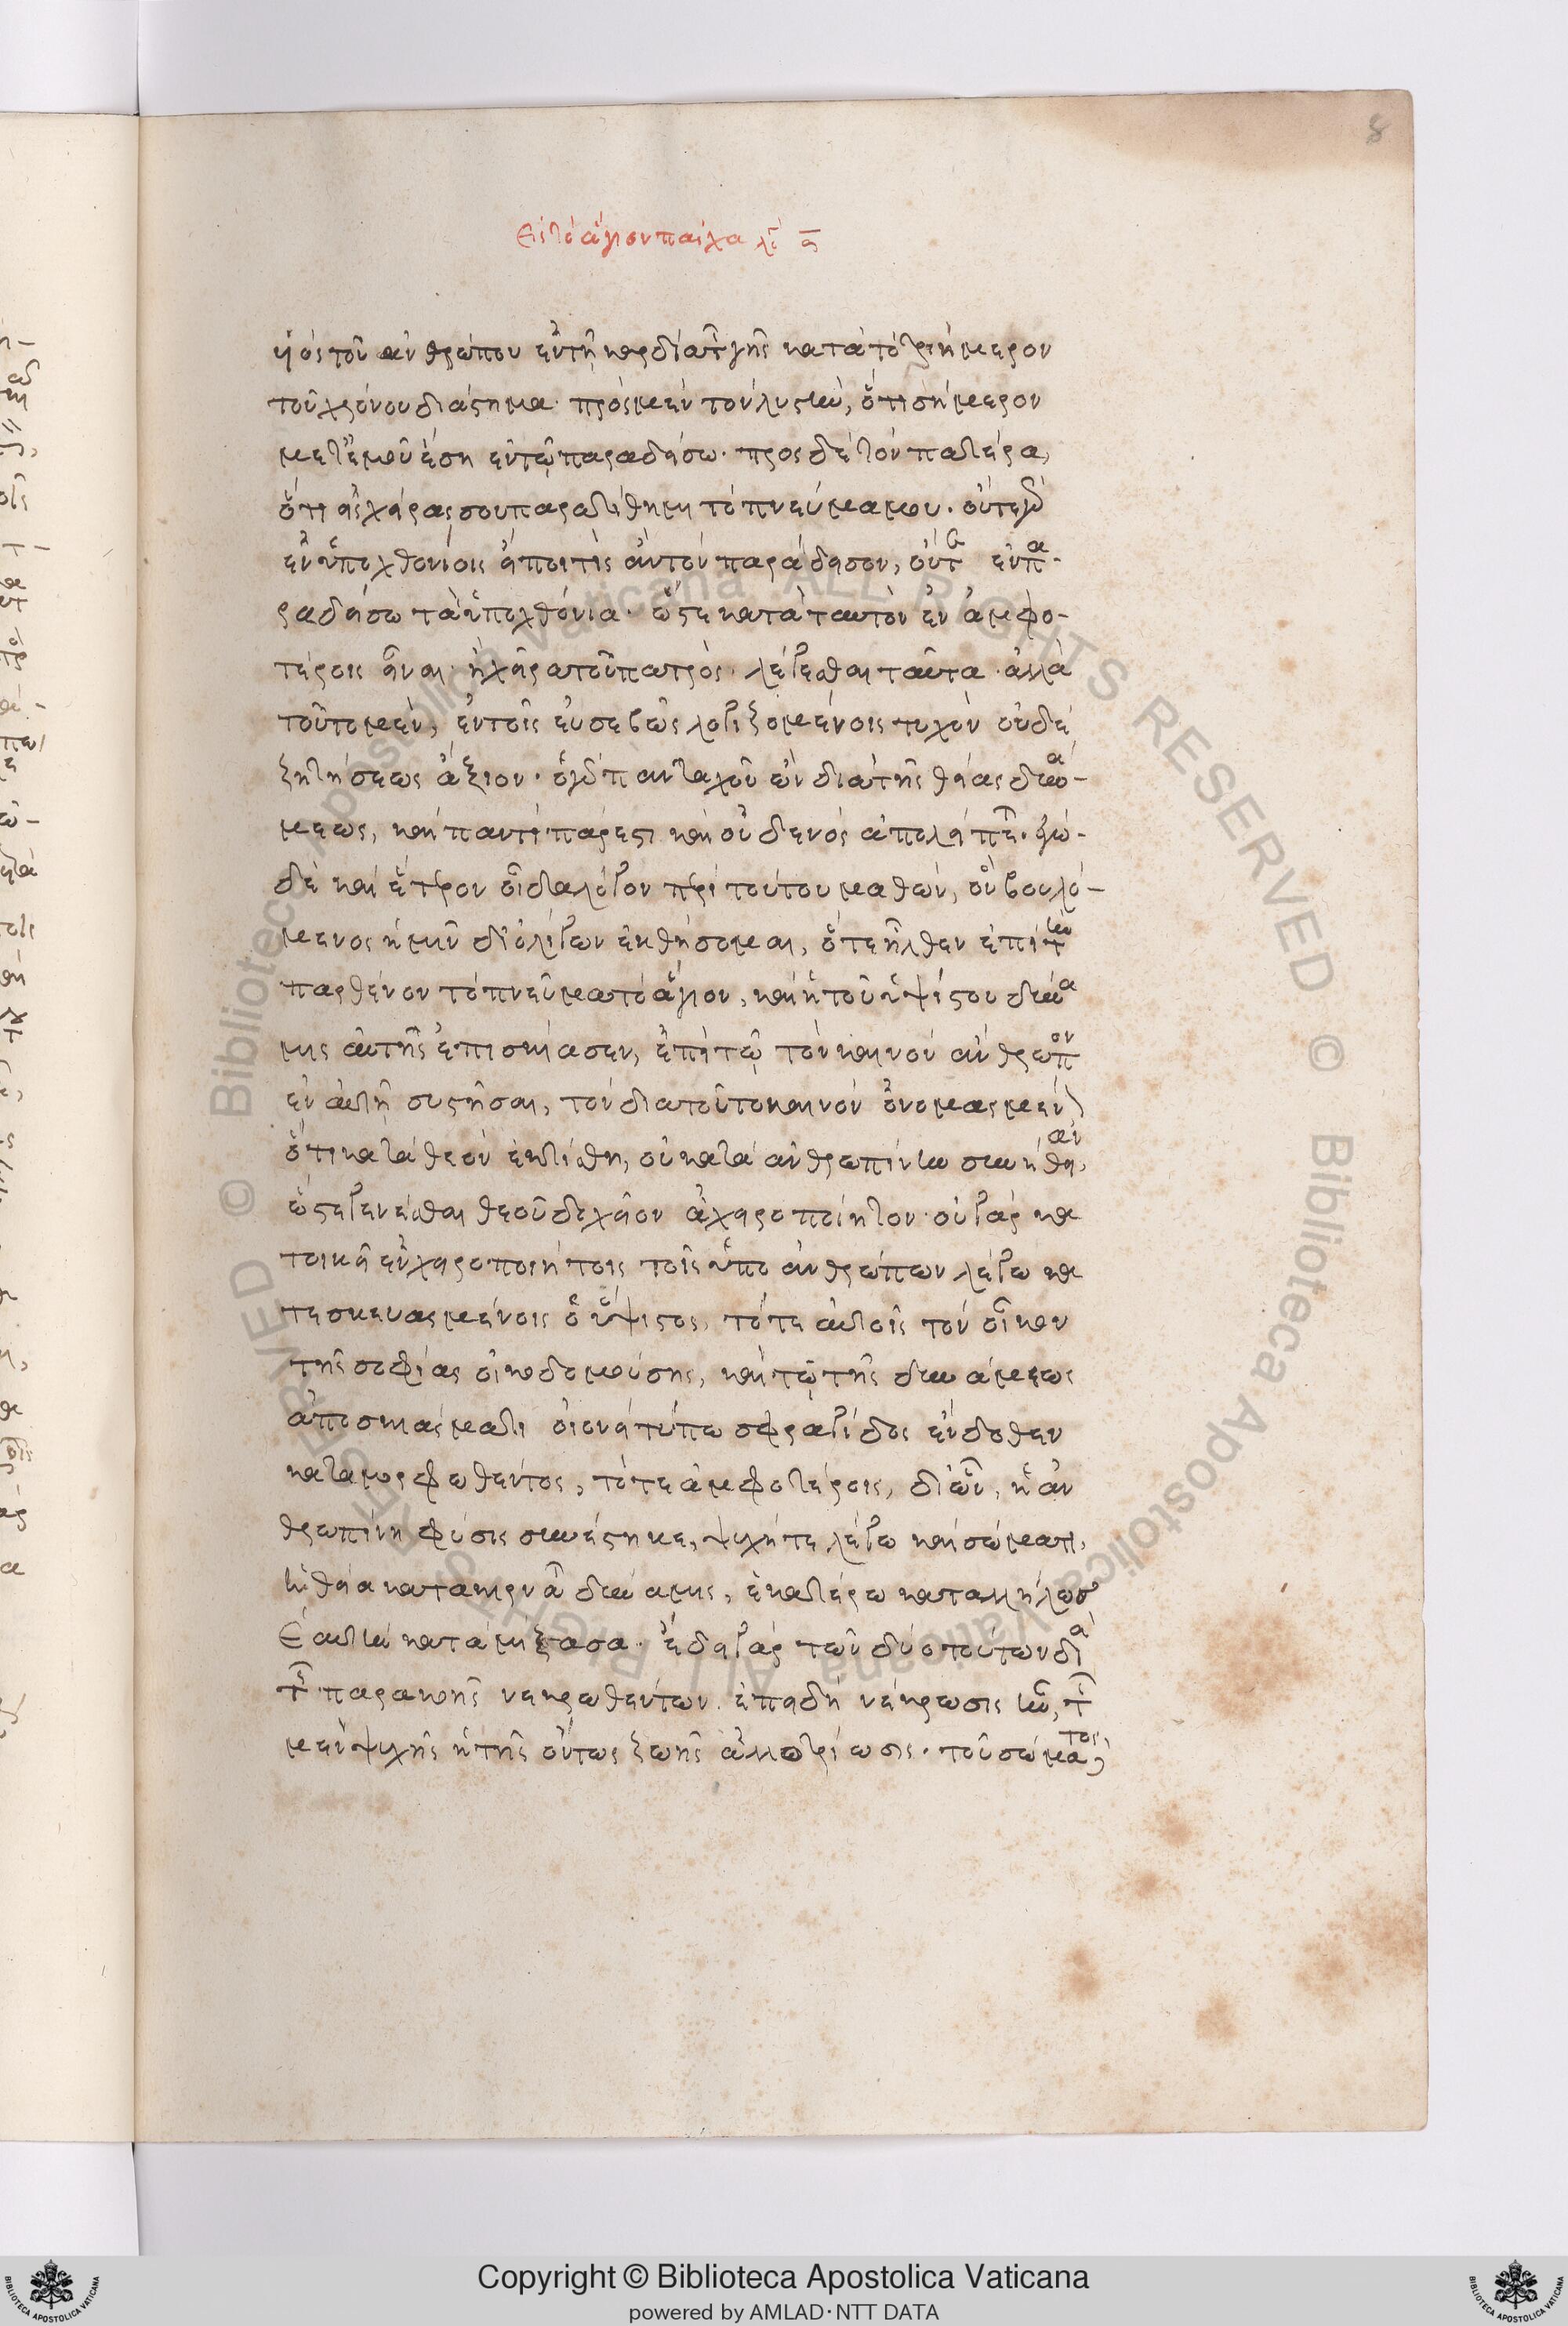 8
Εἰς τὸ ἅγιον πάσχα λό α
υἱὸς τοῦ ἀνθρώπου ἐν τῇ καρδίᾳ τ γῆς κατὰ τὸ τριήμερον
τοῦ χρόνου διάστημα· πρὸς μὲν τὸν λῃστὴν, ὅτι σήμερον
μετ' ἐμοῦ ἔσῃ ἐν τῷ παραδείσω· προς δὲ τὸν πατέρα,
ὅτι εἰς χεῖράς σου παρατίθημι τὸ πνεῦμα μου. οὔτε γὰρ
ἐν ὑποχθονίοις εἴποι τίς ἂν τὸν παράδεισον, οὔτε ἐν πα-
ραδείσω τὰ ὑποχθόνια· ὥστε κατὰ ταυτὸν ἐν ἀμφο-
τέροις εἶναι· ἢ χεῖρα τοῦ πατρὸς λέγεσθαι ταῦτα· ἀλλὰ
τοῦτο μὲν, ἐν τοῖς εὐσεβῶς λογιζομένοις τυχὸν οὐδὲ
ζητήσεως ἄξιον· ὁ γὰρ πανταχοῦ ὢν διὰ τῆς θείας δυνά-
μεως, καὶ παντὶ πάρεστι καὶ οὐδενὸς ἀπολείπεται· ἐγὼ
δὲ καὶ ἕτερον οἶδα λόγον περὶ τούτου μαθὼν, ὃν βουλο-
μένοις ἡμῖν δι' ὀλίγων ἐκθήσομαι, ὅτε ἦλθεν ἐπὶ τὴν
παρθένον τὸ πνεῦμα τὸ ἅγιον, καὶ ἡ τοῦ ὑψίστου δύνα
μις αὐτῆς ἐπισκίασεν, ἐπὶ τῷ τὸν καινὸν ἄνθρωπον
ἐν αὐτῇ συστῆσαι, τὸν διὰ τοῦτο καινὸν ὀνομασμένον
ὅτι κατὰ θεὸν ἐκτίσθη, οὐ κατὰ ἀνθρωπίνην συνήθειαν,
ὥστε γενέσθαι θεοῦ δοχεῖον ἀχειροποίητον· οὐ γὰρ κα
τοικεῖ ἐν χειροποιήτοις τοῖς ὑπὸ ἀνθρώπων λέγω κα
τεσκευασμένοις ὁ ὕψιστος, τότε αὐτοῖς τὸν οἶκον
τῆς σοφίας οἰκοδομούσης, καὶ τῷ τῆς δυνάμεως
ἀποσκιάσματι οἱονεὶ τύπω σφραγίδος ἔνδοθεν
καταμορφωθέντος, τότε ἀμφοτέροις, δι' ὧν, ἡ ἀν
θρωπίνη φύσις συνέστηκε, ψυχῆ τε λέγω καὶ σώματι,
ἡ θεία κατακιρνᾶ δύναμις, ἑκατέρω καταλλήλως
ἑαυτὴν καταμίξασα· ἔδει γὰρ τῶν δύο τούτων διὰ
τ παρακοῆς νεκρωθέντων· ἐπειδὴ νέκρωσις ἦν, τ
μὲν ψυχῆς ἡ τῆς ὄντως ζωῆς ἀλλοτρίωσις· τοῦ σώματος
Copyright © Biblioteca Apostolica Vaticana
powered by AMLAD·NTT DATA